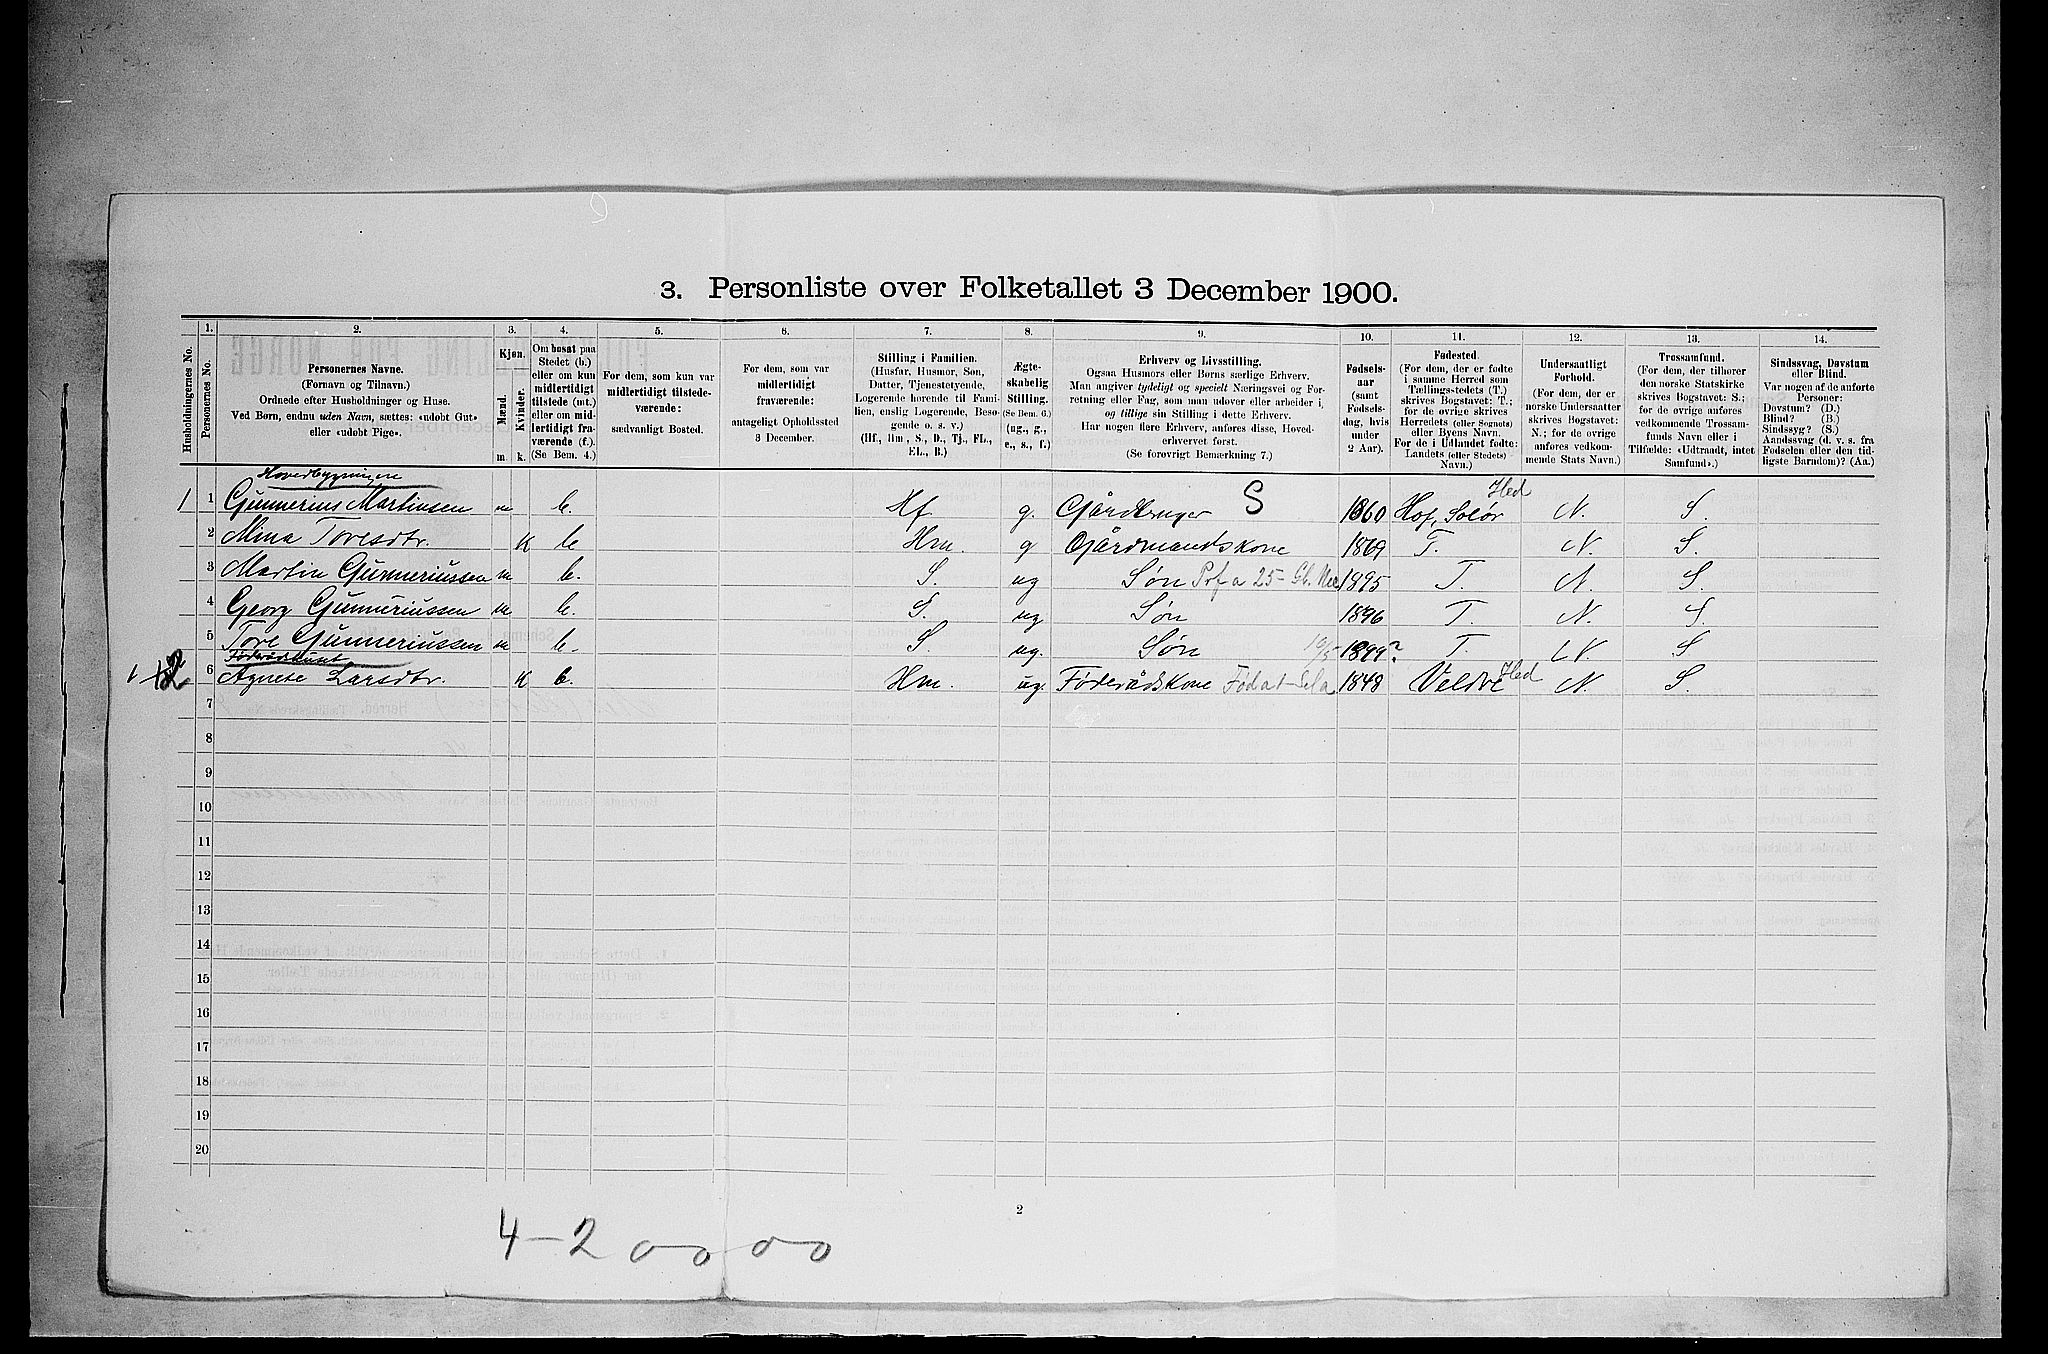 3. Personliste over Folketallet 3 December 1900.
Husholdningernes No.
1.
Personernes No.
2.
Personernes Navne.
(Fornavn og Tilnavn.)
Ordnede efter Husholdninger og Huse.
Ved Børn, endnu uden Navn, sættes: «udøbt Gut»
eller «udøbt Pige».
3.
Kjøn.
Mænd.
Kvinder.
m. k.
4.
Om bosat paa
Stedet (b.)
eller om kun
midlertidigt
tilstede (mt.)
eller om mid-
lertidigt fra-
værende (f.).
(Se Bem. 4.)
5.
For dem, som kun var
midlertidigt tilstede-
værende:
sædvanligt Bosted.
6.
For dem, som var
midlertidigt
fraværende:
antageligt Opholdssted
3 December.
7.
Stilling i Familien.
(Husfar, Husmor, Søn,
Datter, Tjenestetyende,
Logerende hørende til Fami-
lien, enslig Logerende, Besø-
gende o. s. v.)
(Hf., Hm., S., D., Tj., FL.,
EL., B.)
8.
Ægte-
skabelig
Stilling.
(Se Bem. 6.)
(ug., g.,
e., s., f.)
9.
Erhverv og Livsstilling.
Ogsaa Husmors eller Børns særlige Erhverv.
Man angiver tydeligt og specielt Næringsvei og For-
retning eller Fag, som man udøver eller arbeider i,
og tillige sin Stilling i dette Erhverv.
Har nogen flere Erhverv, anføres disse, Hoved-
erhvervet først.
(Se forøvrigt Bemærkning 7.)
10.
Fødsels-
aar
(samt
Fødsels-
dag, hvis
under
2 Aar).
11.
Fødested.
(For dem, der er fødte
i samme Herred som
Tællings-stedets (T.)
skrives Bogstavet: T.;
for de øvrige skrives
Herredets (eller Sognets)
eller Byens Navn.
For de i Udlandet fødte:
Landets (eller Stedets)
Navn.)
12.
Undersaatligt
Forhold.
(For dem, der er
norske Undersaatter
skrives Bogstavet:
N.; for de øvrige
anføres vedkom-
mende Stats Navn.)
13.
Trossamfund.
(For dem, der tilhører
den norske Statskirke
skrives Bogstavet: S.;
for de øvrige anføres
vedkommende Trossam-
funds Navn eller i
Tilfælde: «Udtraadt, intet
Samfund».)
14.
Sindssvag, Døvstum
eller Blind.
Var nogen af de anførte
Personer:
Døvstum? (D.)
Blind? (B.)
Sindssyg? (S.)
Aandssvag (d. v. s. fra
Fødselen eller den tid-
ligste Barndom)? (Aa.)
Hovedbygningen
1 1 Gunnerius Martinsen m b. Hf. g. Gårdbruger S 1860 Hof, Solør Hed N. S.
2 Mina Toresdtr. K b Hm. g Gårdmandskone 1869 T. N. S.
3 Martin Gunneriussen m b. S. ug Søn 1895 T. N. S
4 Georg Gunneriussen m b. S. ug Søn 1896 T. N. S.
5 Tore Gunneriussen m b. S ug. Søn 10/5 1899? T. N. S
Føderådhuset
1 2 6 Agnete Larsdtr. K b. Hm. ug. Føderådskone 1848 Veldre Hed N. S.
7
8
9
10
11
12
13
14
15
16
17
18
19
20
2
4-2 00 00